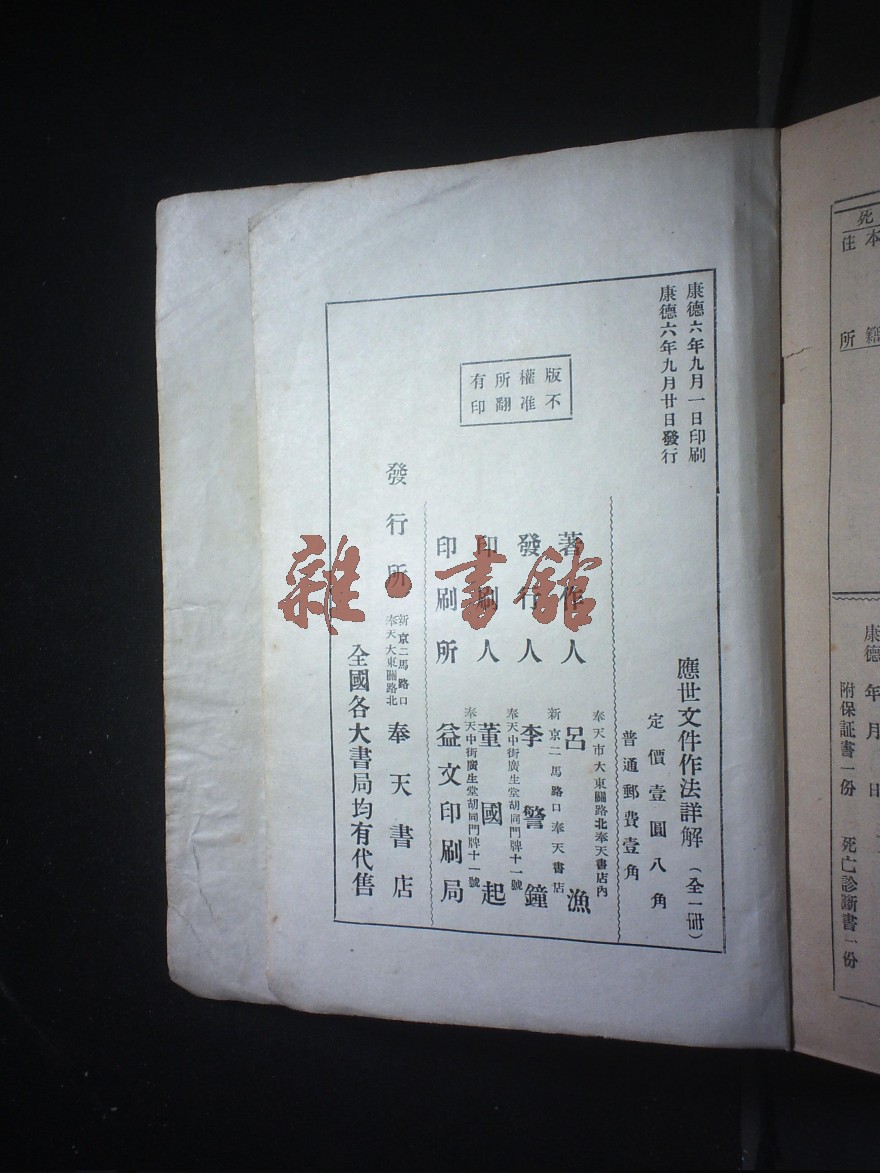 死
本籍
住所
康德 年 月 日
附保証書一份 死亡診斷書一份
康德六年九月一日印刷
康德六年九月廿日發行
版權所有
不准翻印
應世文件作法詳解（全一册）
定價壹圓八角
普通郵費壹角
奉天市大東關路北奉天書店內
著作人 呂漁
新京二馬路口奉天書店
發行人 李警鐘
奉天中街廣生堂胡同門牌十一號
印刷人 董國起
奉天中街廣生堂胡同門牌十一號
印刷所 益文印刷局
新京二馬路口
奉天大東關路北
發行所 奉天書店
全國各大書局均有代售
雜·書館